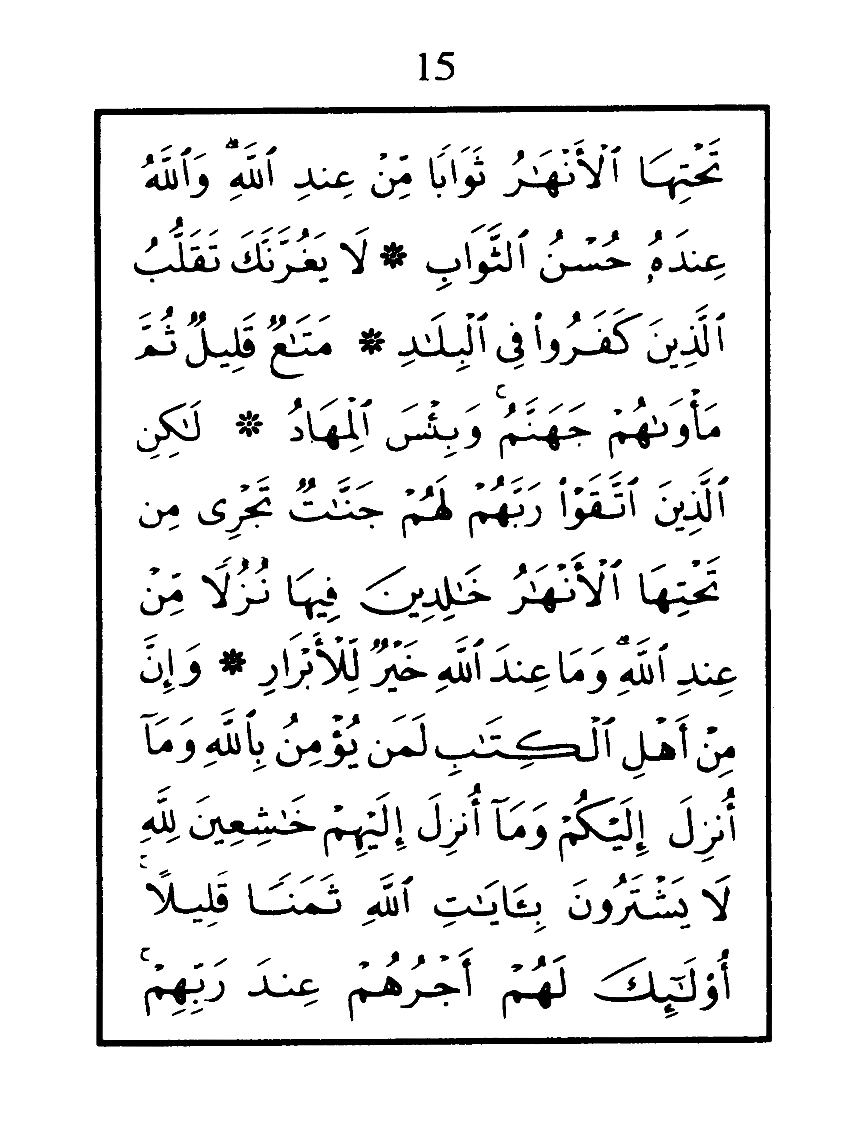 15
تَحْتِهَا ٱلْأَنْهَـٰرُ ثَوَابًا مِّنْ عِندِ ٱللَّهِ ۗ وَٱللَّهُ
عِندَهُۥ حُسْنُ ٱلثَّوَابِ * لَا يَغُرَّنَّكَ تَقَلُّبُ
ٱلَّذِينَ كَفَرُوا۟ فِى ٱلْبِلَـٰدِ * مَتَـٰعٌ قَلِيلٌ ثُمَّ
مَأْوَىٰهُمْ جَهَنَّمُ ۚ وَبِئْسَ ٱلْمِهَادُ * لَـٰكِنِ
ٱلَّذِينَ ٱتَّقَوْا۟ رَبَّهُمْ لَهُمْ جَنَّـٰتٌ تَجْرِى مِن
تَحْتِهَا ٱلْأَنْهَـٰرُ خَـٰلِدِينَ فِيهَا نُزُلًا مِّنْ
عِندِ ٱللَّهِ ۗ وَمَا عِندَ ٱللَّهِ خَيْرٌ لِّلْأَبْرَارِ * وَإِنَّ
مِنْ أَهْلِ ٱلْكِتَـٰبِ لَمَن يُؤْمِنُ بِٱللَّهِ وَمَآ
أُنزِلَ إِلَيْكُمْ وَمَآ أُنزِلَ إِلَيْهِمْ خَـٰشِعِينَ لِلَّهِ
لَا يَشْتَرُونَ بِـَٔايَـٰتِ ٱللَّهِ ثَمَنًا قَلِيلًا ۚ
أُو۟لَـٰٓئِكَ لَهُمْ أَجْرُهُمْ عِندَ رَبِّهِمْ ۚ